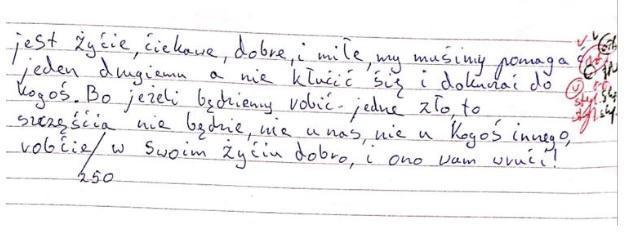 jest życie, ciekawe, dobre, i miłe, my musimy pomagać
jeden drugiemu a nie kłucić się i dokuzać do
kogoś. Bo jeżeli będziemy robić jedne zło, to
szczęścia nie będzie, nie u nas, nie u kogoś innego,
robcie / w swoim życiu dobro, i ono wam wruci!
250